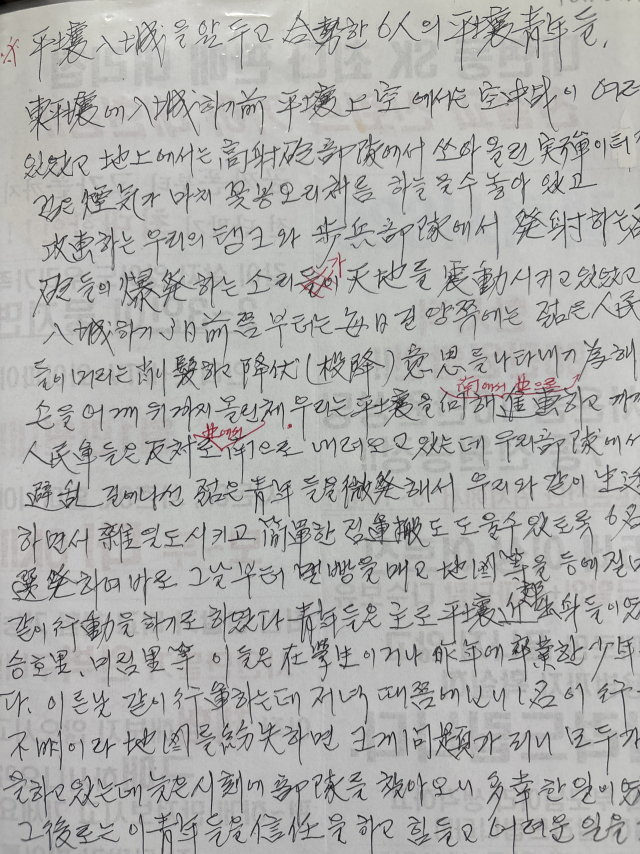 平壤入城을 앞두고 合勢한 6人의 平壤靑年들.
東平壤에 入城하기前 平壤上空에서는 空中战이
있었고 地上에서는 高射砲部隊에서 쏘아올린 実弾이
검은 煙気가 마치 꽃봉오리처름 하늘을 수놓아 있고
攻擊하는 우리의 탱크와 步兵部隊에서 発射하는
砲들의 爆発하는 소리가 天地를 震動시키고있었고
入城하기 3日前쯤부터는 每日 길양쪽에는 젊은 人民
들이 머리는 削髮하고 降伏(投降) 意思를 나타내기 為해
손을 어깨위까지 올린체 우리는 平壤을 向해 進軍하고
南에서 北으로
人民軍들은 反対로 南으로 내려오고 있는데 우리部隊에서
北에서
避乱길에나선 젊은靑年들을 徵発해서 우리와 같이 生活
하면서 雜일도시키고 簡單한 짐運搬도 도울수있도록 6名
選発하여 바로 그날부터 멜빵을 메고 地図等을 등에 질머
같이 行動을 하기로 하였다 靑年들은 主로 平壤近郊
승호里, 미림里等 이들은 在學生이거나 昨年에 卒業한 少年
다. 이튼날 같이 行軍하는데 저녁 때쯤에 보니 1名이 行
不明이라 地図를 紛失하면 크게 問題가 되니 모두가
을하고 있는데 늦은 시刻에 部隊를 찾아오니 多幸한 일이
그後로는 이 靑年들을 信任을 하고 힘들고 어려운 일을